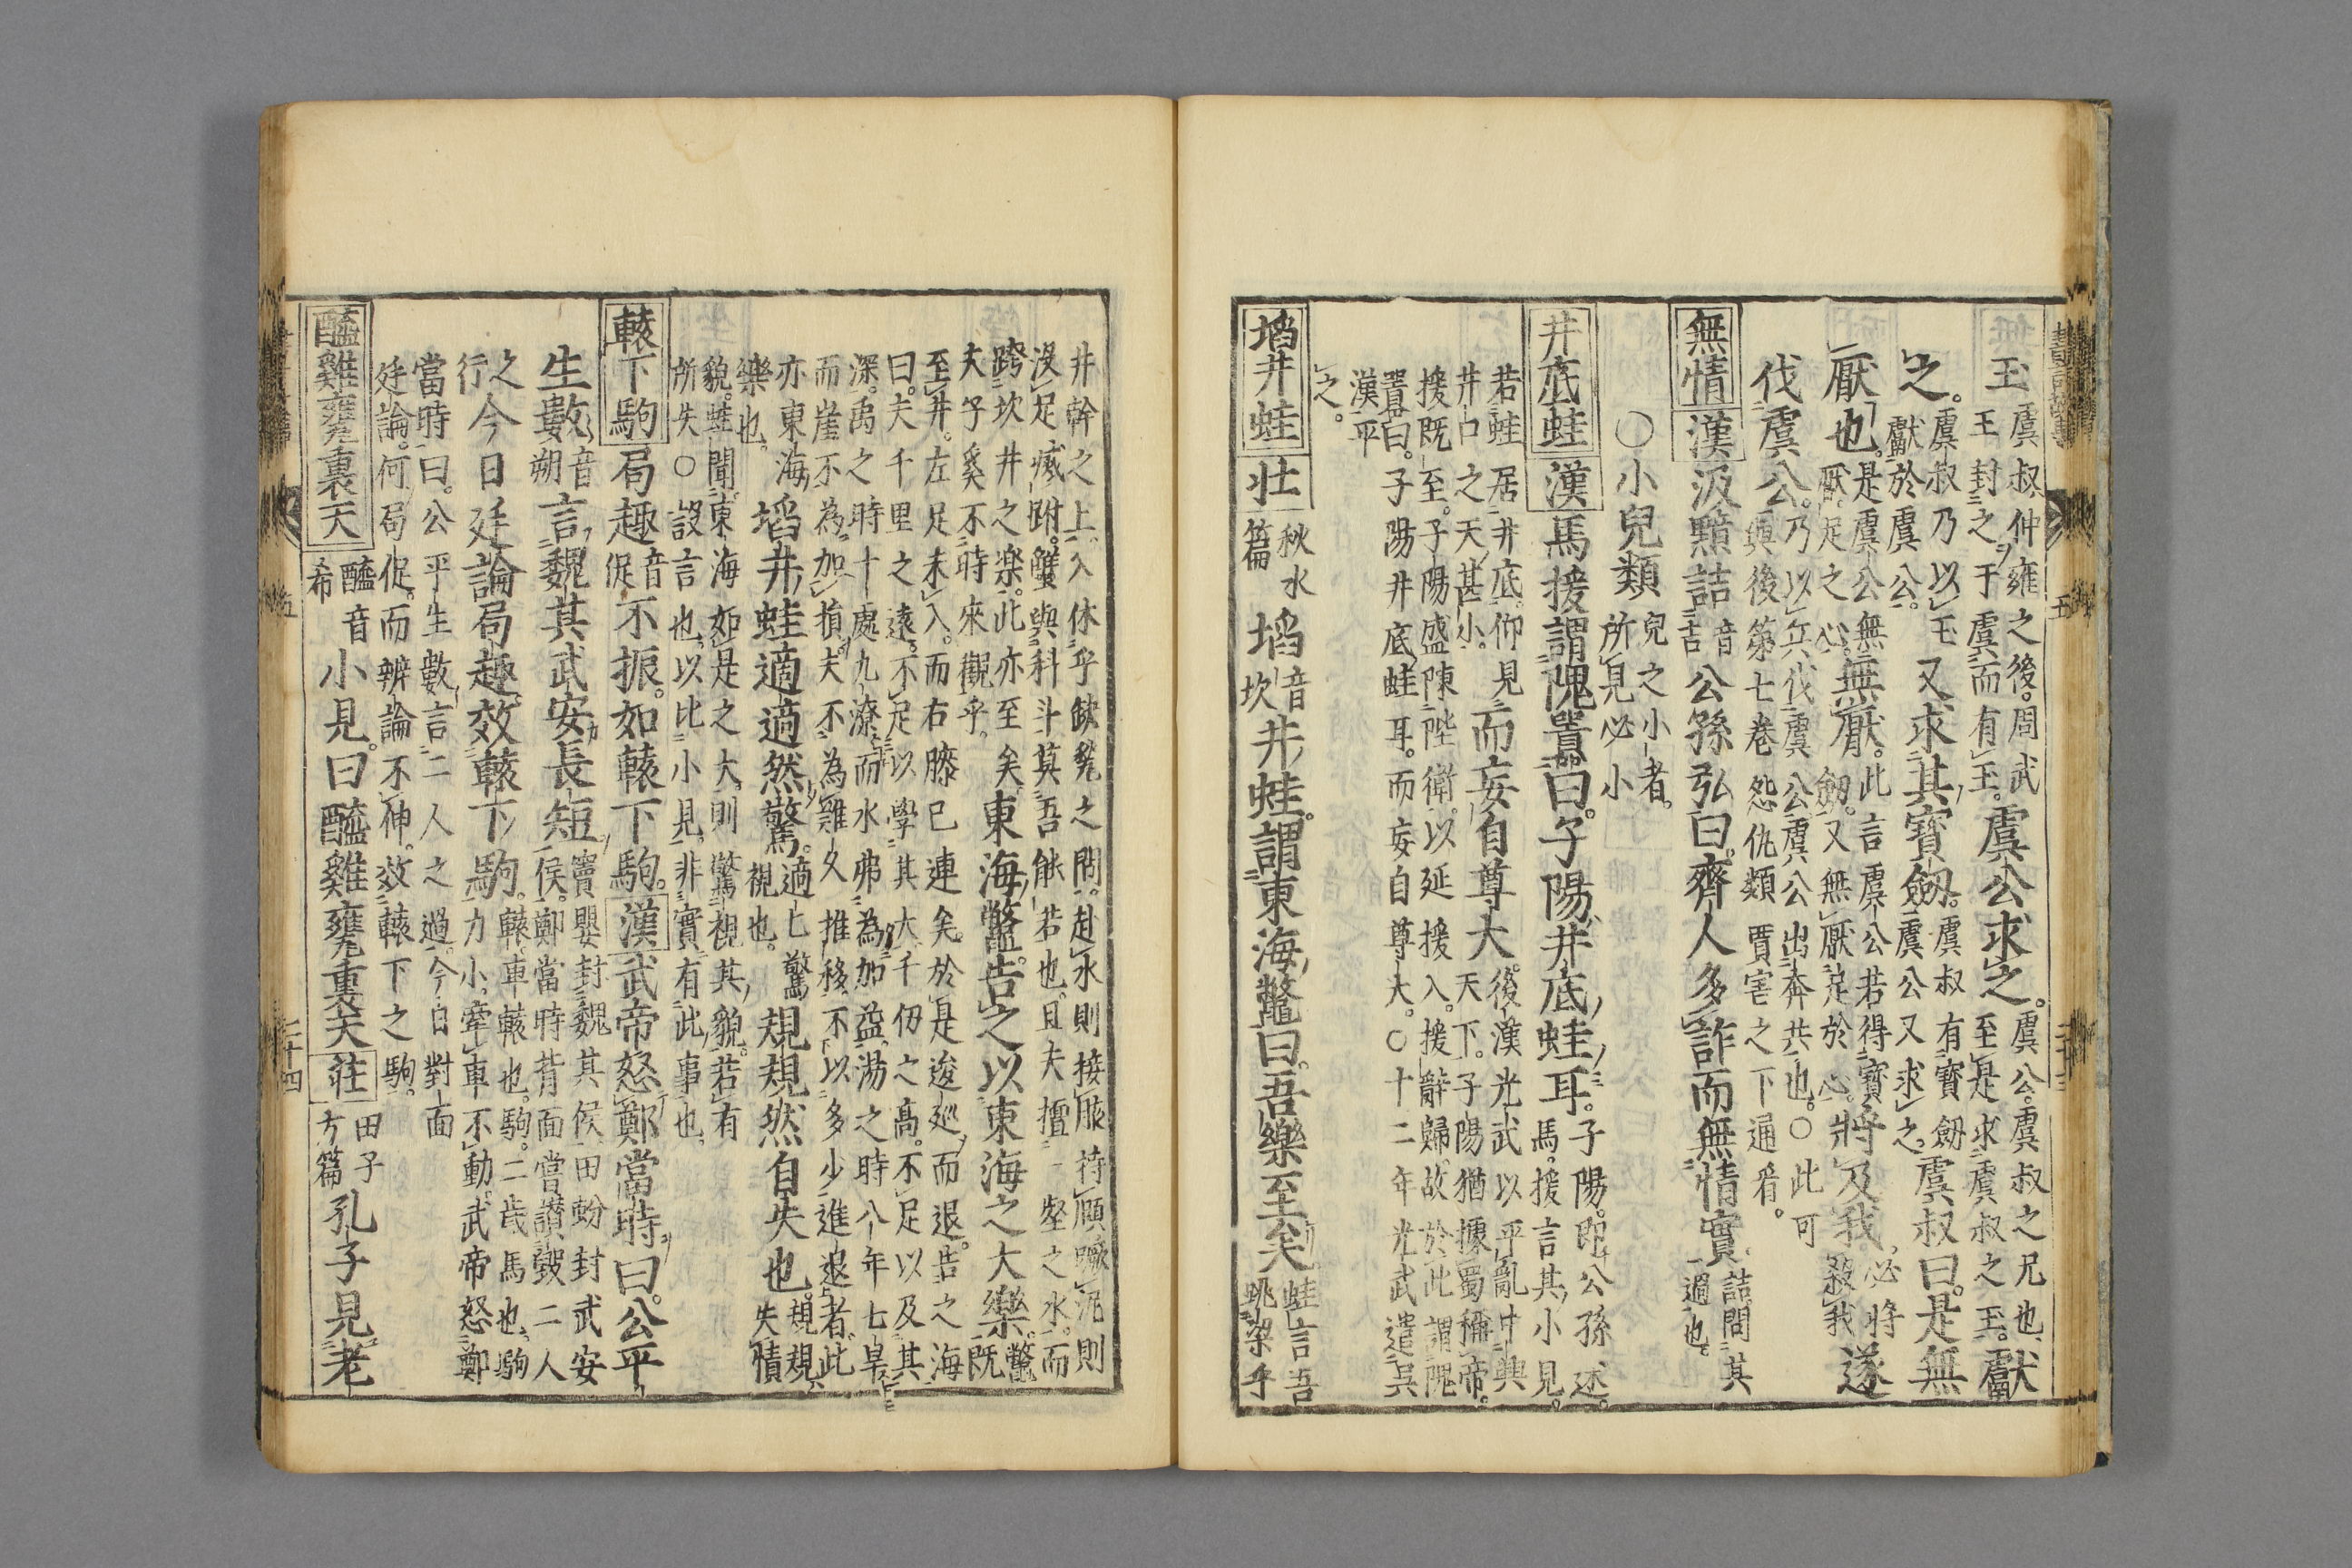 玉虞叔仲雍之後。周武王封之于虞而有玉。虞公求之。虞公。虞叔之兄也、至是求虞叔之玉。獻
之。虞叔乃以玉獻於虞公。又求其寶劒。虞叔有寶劒虞公又求之。虞叔曰。是無
厭也。是虞公無厭足之心。無厭。此言虞公若得寶劒。又無厭足於心。將及我、必將殺我遂
伐虞公。乃以兵伐虞公虞公出奔共也。○此可與後第七卷怨仇類賈害之下通看。
無情 漢 汲黯詰音吉公孫弘曰。齊人多詐而無情實詰問其過也。
○小兒類兒之小者。所見必小
井底蛙 漢 馬援謂隗囂曰。子陽井底蛙耳。子陽。即公孫述。馬援言其小見。
若蛙居井底。仰見井口之天甚小。而妄自尊大。後漢光武以平亂中興天下。子陽猶據蜀稱帝。
援既至。子陽盛陳陛衛。以延援入。援辭歸。故於此謂隗
囂曰。子陽井底蛙耳。而妄自尊大。○十二年光武遣吳
漢平之。
埳井蛙 壮 秋水篇 埳音坎井蛙。謂東海鼈曰。吾樂至矣蛙言吾跳梁乎
井幹之上。入休乎缺甃之間。赴水則接腋持頤蹶泥則
沒足滅跗。蟹與科斗莫吾能若也。且夫擅一壑之水。而
跨坎井之楽。此亦至矣夫子奚不時來觀乎。東海鼈。告之以東海之大樂。鼈既
至井。左足未入。而右膝已連矣。於是逡巡而退。告之海
曰。夫千里之遠。不足以學其大。千仞之高。不足以及其
深。禹之時十處九潦。而水弗為加益。湯之時八年七旱
而崖不為加損。夫不為雖久推移。不以多少進退者。此
亦東海樂也。埳井蛙適適然驚。適〻驚視也。規規然自失也。規規。失情
貌。蛙聞東海如是之大。則驚視其貌。若有
所失○設言也以比小見。非實有此事也。
轅下駒 局趣音促不振。如轅下駒。漢 武帝怒鄭當時曰。公平
生數音朔言魏其武安長短竇嬰封魏其侯田蚡封武安侯。鄭當時背面嘗讃毀二人
之行今日廷論局趣。效轅下駒。轅車轅也。駒。二歳馬也。駒力小。牽車不動。武帝怒鄭
當時曰。公平生數言二人之過。今日對面
廷論。何局促。而辨論不伸。效轅下之駒。
醯雞甕裏天 醯音希 小見。曰醯雞甕裏天 莊 田子方篇 孔子見老